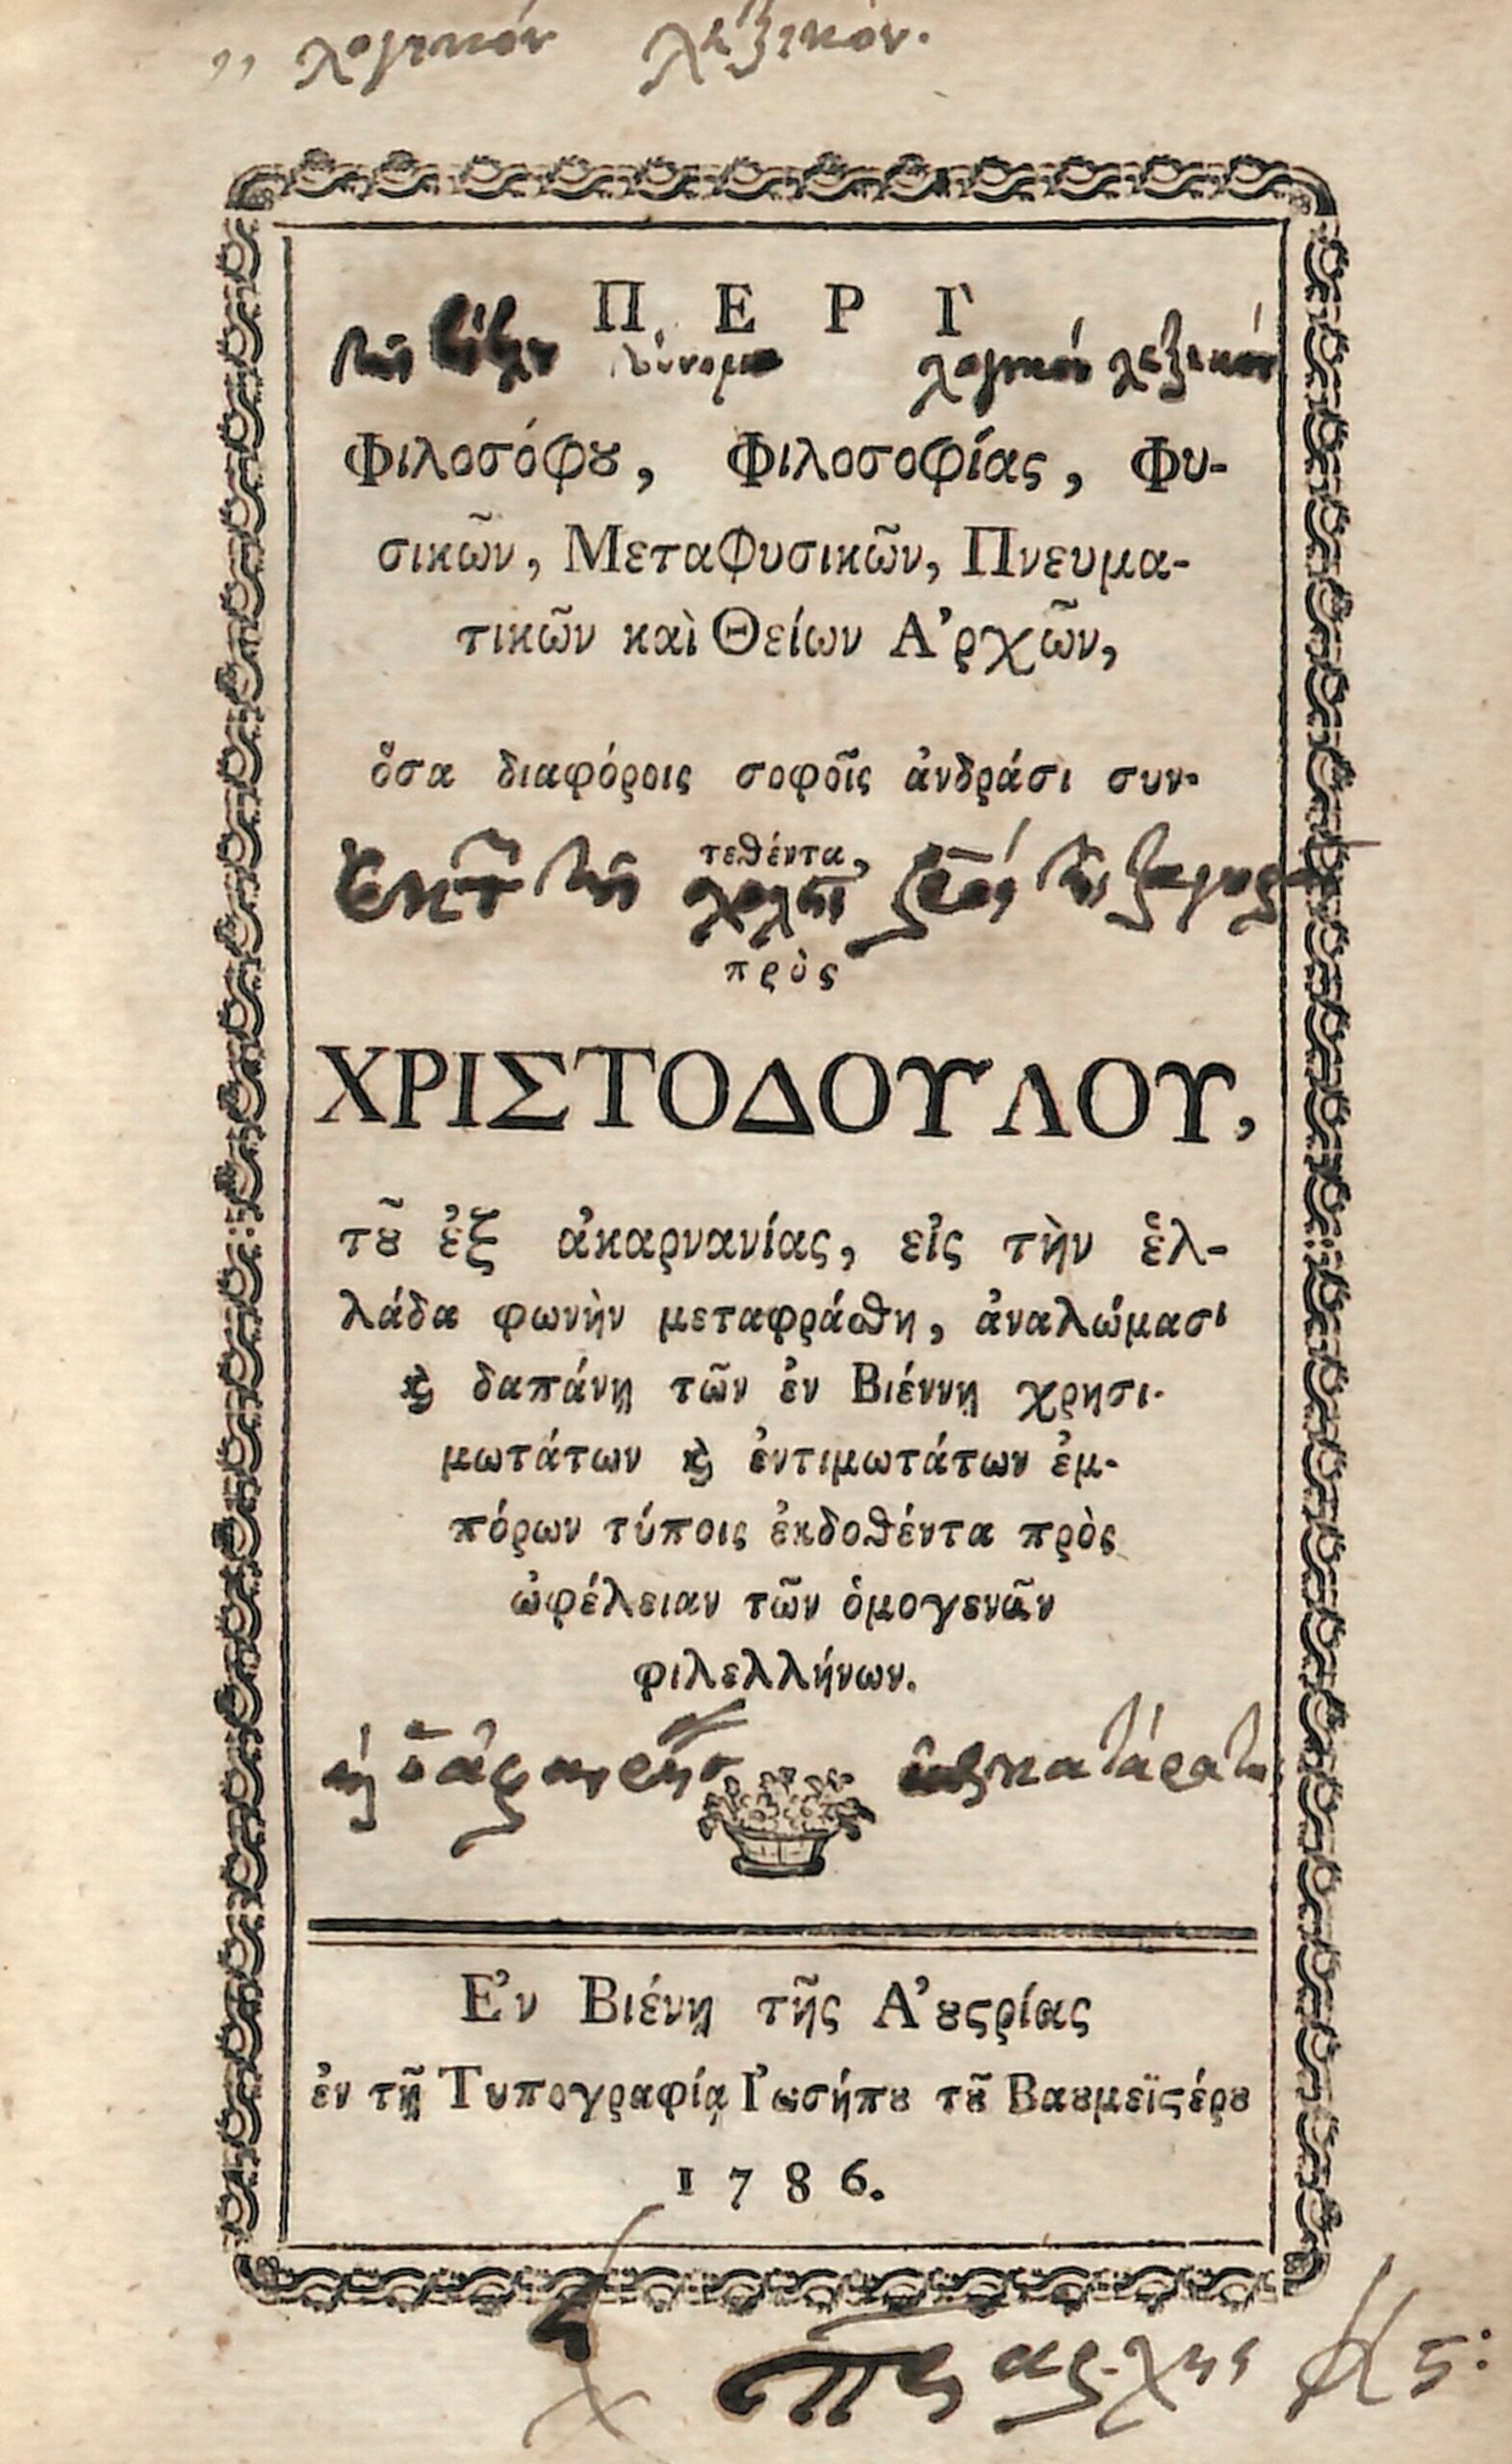 λογικόν λεξικόν.
ΠΕΡῚ
λογικόν λεξικόν
Φιλοσόφȣ, Φιλοσοφίας, Φυ-
σικῶν, Μεταφυσικῶν, Πνευμα-
τικῶν καὶ Θείων Ἀρχῶν,
ὅσα διαφόροις σοφοῖς ἀνδράσι συν-
τεθέντα,
πρὸς
ΧΡΙΣΤΟΔΟΥΛΟΥ,
τȣ͂ ἐξ ἀκαρνανίας, εἰς τὴν ἑλ-
λάδα φωνὴν μεταφράσθη, ἀναλώμασι
ϗ δαπάνῃ τῶν ἐν Βιέννῃ χρησι-
μωτάτων ϗ ἐντιμωτάτων ἐμ-
πόρων τύποις ἐκδοθέντα πρὸς
ὠφέλειαν τῶν ὁμογενῶν
φιλελλήνων.
Ἐν Βιένῃ τῆς Ἀȣϛρίας
ἐν τῇ Τυπογραφίᾳ Ἰωσήπȣ τȣ͂ Βαȣμεϊϛέρȣ
1786.